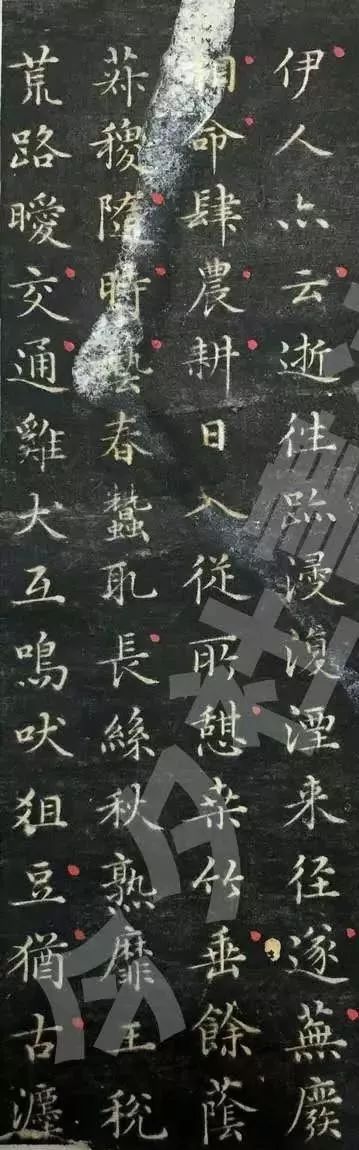 伊人亦云逝往跡浸復湮来径遂蕪廢
相命肆農耕日入從所憩桑竹垂餘蔭
菽稷隨時藝春蠶取長絲秋熟靡王稅
荒路曖交通雞犬互鳴吠俎豆猶古灋